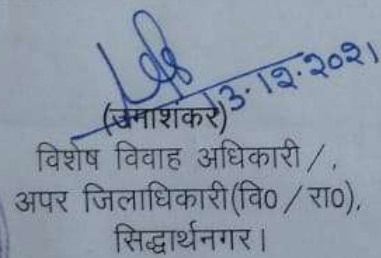 13.12.2021
(उमाशंकर)
विशेष विवाह अधिकारी /,
अपर जिलाधिकारी(वि0 / रा0),
सिद्धार्थनगर।